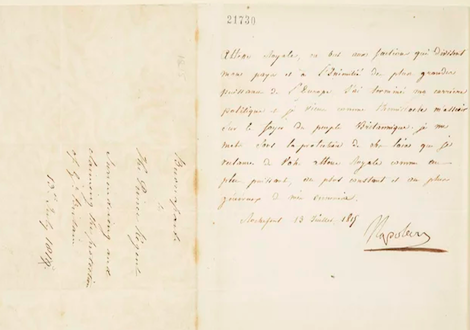 21730
Altesse Royale, en but aux factions qui divisent
mon pays et à l'Inimitié des plus grandes
puissances de l'Europe J'ai terminé ma carriere
politique et je viens comme Themistocles m'asseoir
sur le foyer du peuple Britannique. je me
mets sous la protection de ses loix que je
réclame de Votre Altesse Royale comme au
plus puissant, au plus constant et au plus
genereux de mes ennemis.
Rochefort 13 Juillet 1815
Napoleon
Buonaparte
to
The Prince Regent
Surrendering and
claiming the protection
of Gt. Britain
13th July 1815.